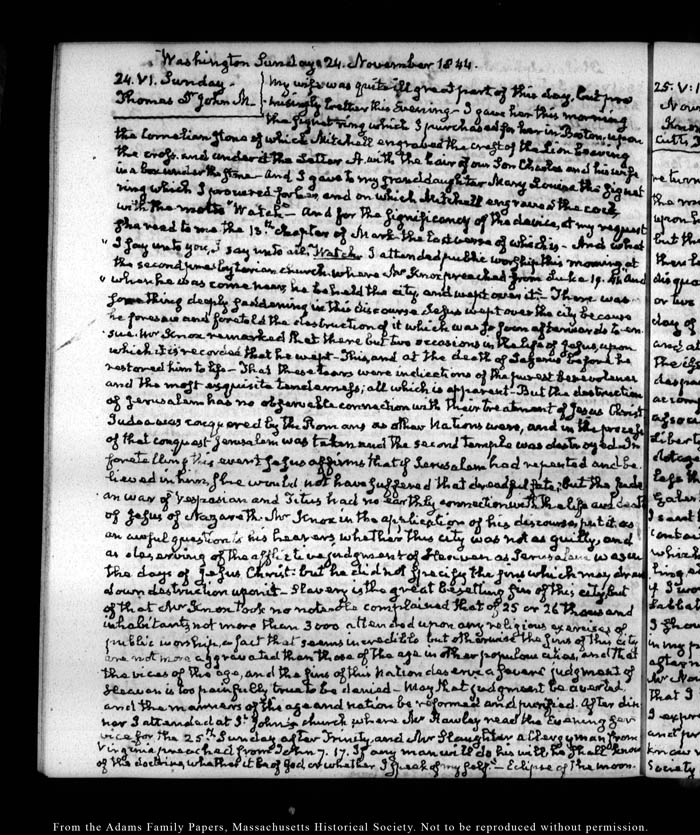 Washington Sunday 24. November 1844.
24. VI. Sunday.
Thomas St John M.
My wife was quite ill great part of this day, but pro
misingly better this Evening - I gave her this morning
the signet ring which I purchased for her in Boston, upon
the Cornelian stone of which Mitchell engraved the crest of the Lion bearing
the cross. and under it the Letter A. with the hair of our Son Charles and his wife
in a box under the stone - And I gave to my granddaughter Mary Louisa the Signet
ring which I procured for her, and on which Mitchell engraved the cock
with the motto "Watch" - And for the significancy of the device, at my request
She read to me the 13th chapter of Mark the last verse of which is - And what
" I say unto you, I say unto all, Watch. I attended public worship this morning at
the second presbyterian church. where Mr Knox preached from Luke 19. 41 "And
" when he was come near, he beheld the city, and wept over it." There was
something deeply saddening in this discourse Jesus wept over the city because
he foresaw and foretold the destruction of it which was so soon afterwards to en-
sue. Mr Knox remarked that there but two occasions in the life of Jesus, upon
which it is recorded that he wept - This, and at the death of Lazarus before he
restored him to life - That these tears were indications of the purest benevolence
and the most exquisite tenderness; all which is apparent - But the destruction
of Jerusalem has no observable connection with their treatment of Jesus Christ
Judea was conquered by the Romans as other Nations were, and in the process
of that conquest Jerusalem was taken and the second temple was destroyed. In
foretelling this event Jesus affirms that if Jerusalem had repented and be-
lieved in him, She would not have suffered that dreadful fate; but the Jude
an war of Vespasian and Titus had no earthly connection with the life and death
of Jesus of Nazareth. Mr Knox in the application of his discourse, put it as
an awful question to his hearers, whether this city was not as guilty, and
as deserving of the afflictive judgment of Heaven as Jerusalem was in
the days of Jesus Christ: but he did not specify the sins which may draw
down destruction upon it - Slavery is the great besetting sin of this city but
of that Mr Knox took no note. He complained that of 25 or 26 thousand
inhabitants, not more than 3000 attended upon any religious exercises of
public worship, a fact that seems incredible but otherwise the sins of this city
are not more aggravated than those of the age in other populous cities, and that
the vices of the age, and the sins of this Nation deserve a severe judgment of
Heaven is too painfully true to be denied - May that judgment be averted,
and the manners of the age and nation be reformed and purified. After din
ner I attended at St John's church where Mr Hawley read the Evening ser
vice for the 25th Sunday after Trinity, and Mr Slaughter a Clergyman from
Virginia preached from John 7. 17. If any man will do his will he shall know
of the doctrine, whether it be of God, or whether I speak of myself." - Eclipse of the moon.
From the Adams Family Papers, Massachusetts Historical Society. Not to be reproduced without permission.